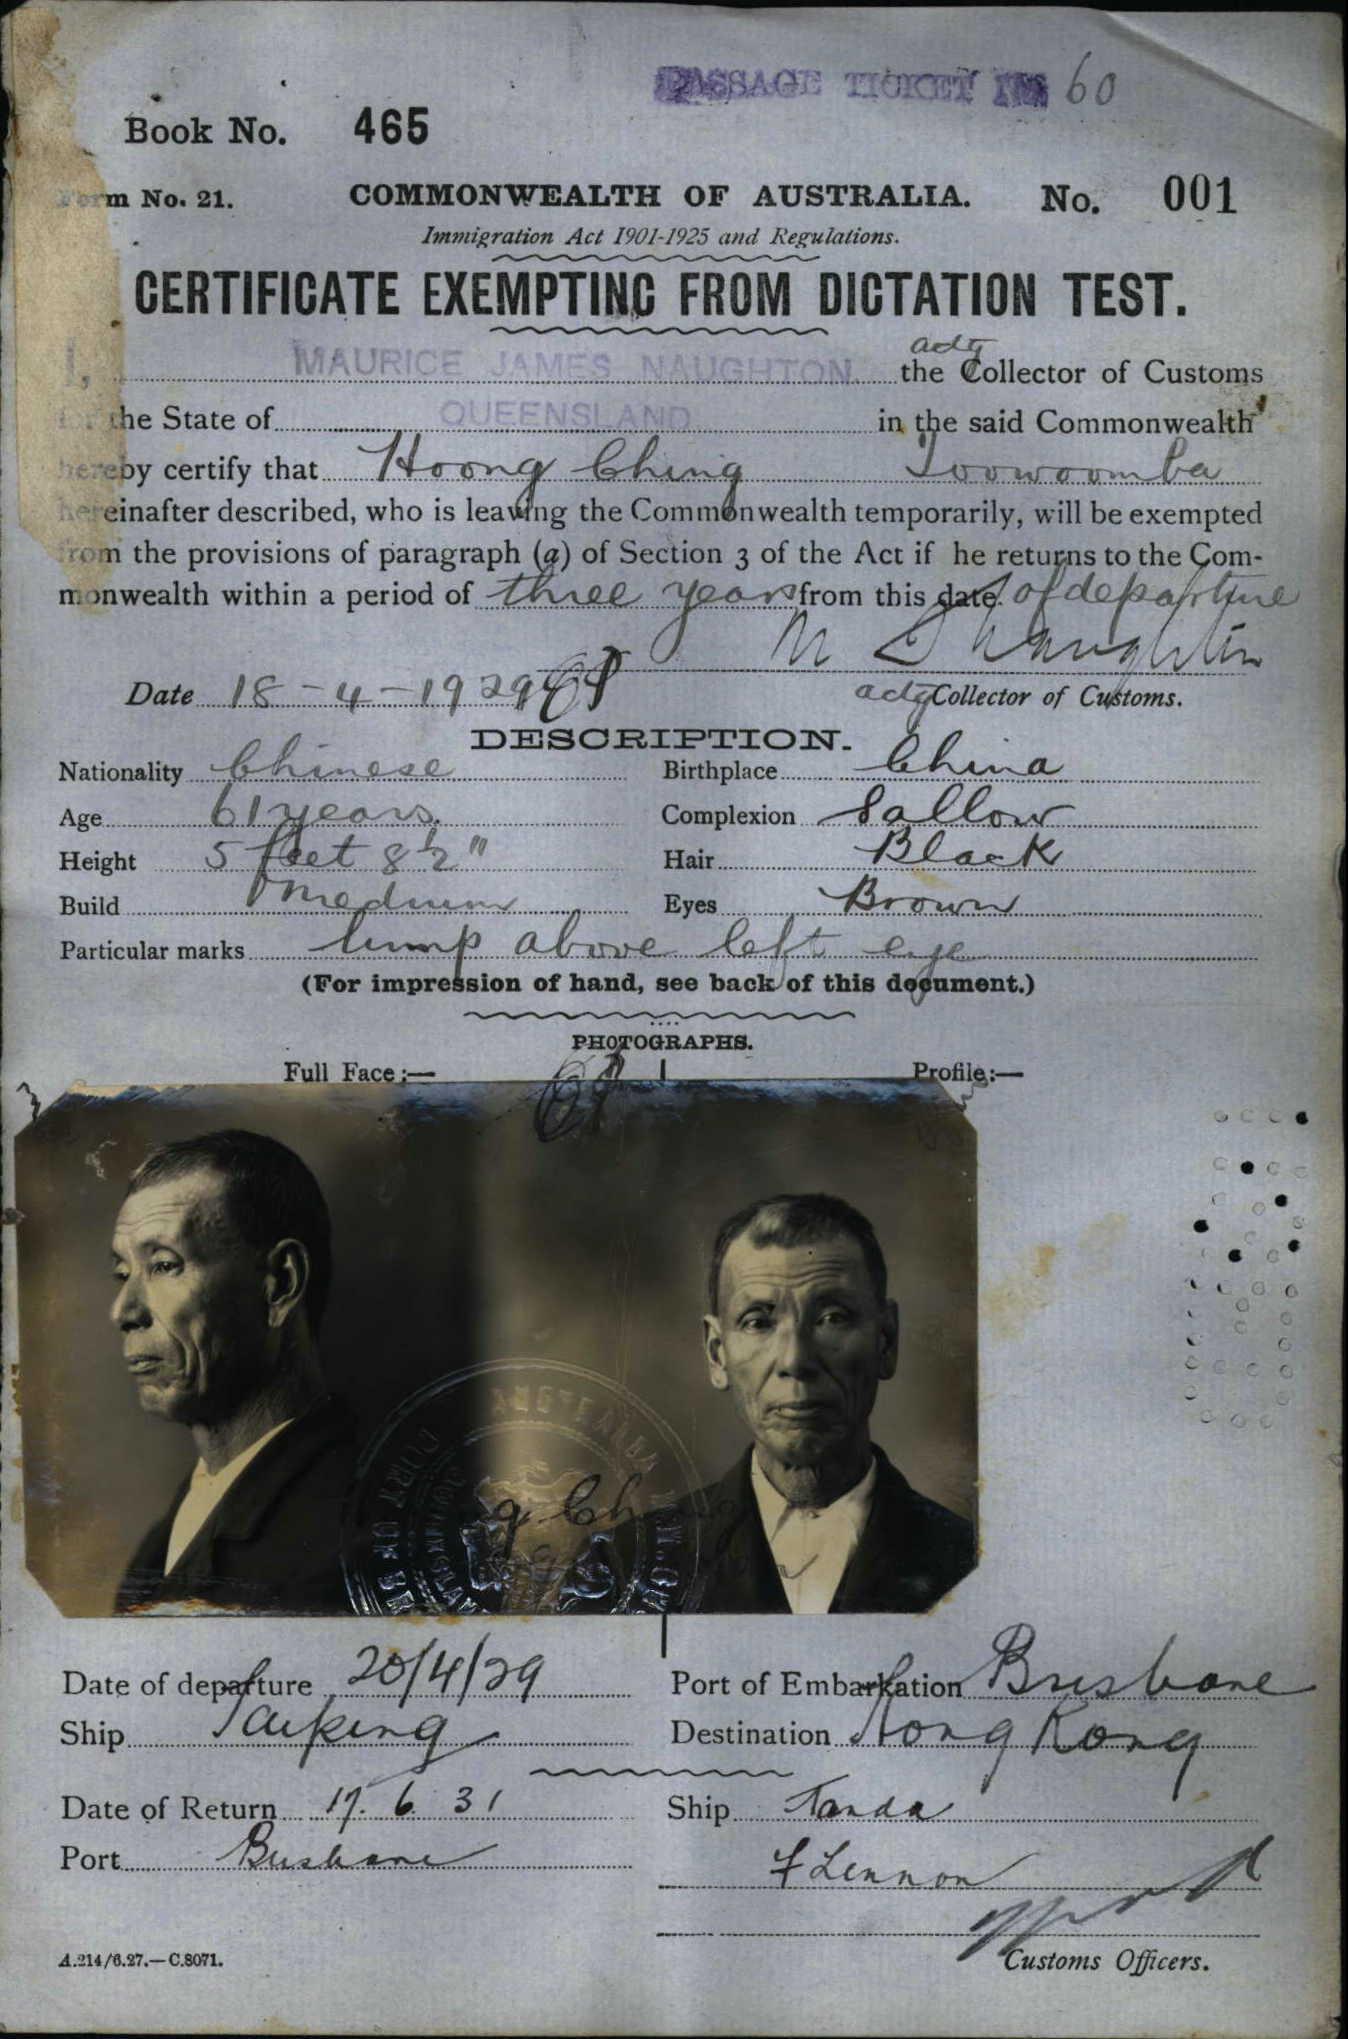 PASSAGE TICKET No 60
Book No. 465
Form No. 21. COMMONWEALTH OF AUSTRALIA. No. 001
Immigration Act 1901-1925 and Regulations.
CERTIFICATE EXEMPTING FROM DICTATION TEST.
I, MAURICE JAMES NAUGHTON actg the Collector of Customs
for the State of QUEENSLAND in the said Commonwealth
hereby certify that Hoong Ching Toowoomba
hereinafter described, who is leaving the Commonwealth temporarily, will be exempted
from the provisions of paragraph (a) of Section 3 of the Act if he returns to the Com-
monwealth within a period of three years from this date of departure
M J Naughton
Date 18-4-1929 actg Collector of Customs.
DESCRIPTION.
Nationality Chinese Birthplace China
Age 61 years. Complexion Sallow
Height 5 feet 8 1/2" Hair Black
Build Medium Eyes Brown
Particular marks lump above left eye
(For impression of hand, see back of this document.)
PHOTOGRAPHS.
Full Face:— Profile:—
AUSTRALIA
g Ching
Date of departure 20/4/29 Port of Embarkation Brisbane
Ship Taiping Destination Hong Kong
Date of Return 17. 6 31 Ship Tanda
Port Brisbane F Lennon
A.214/6.27.—C.8071. Customs Officers.